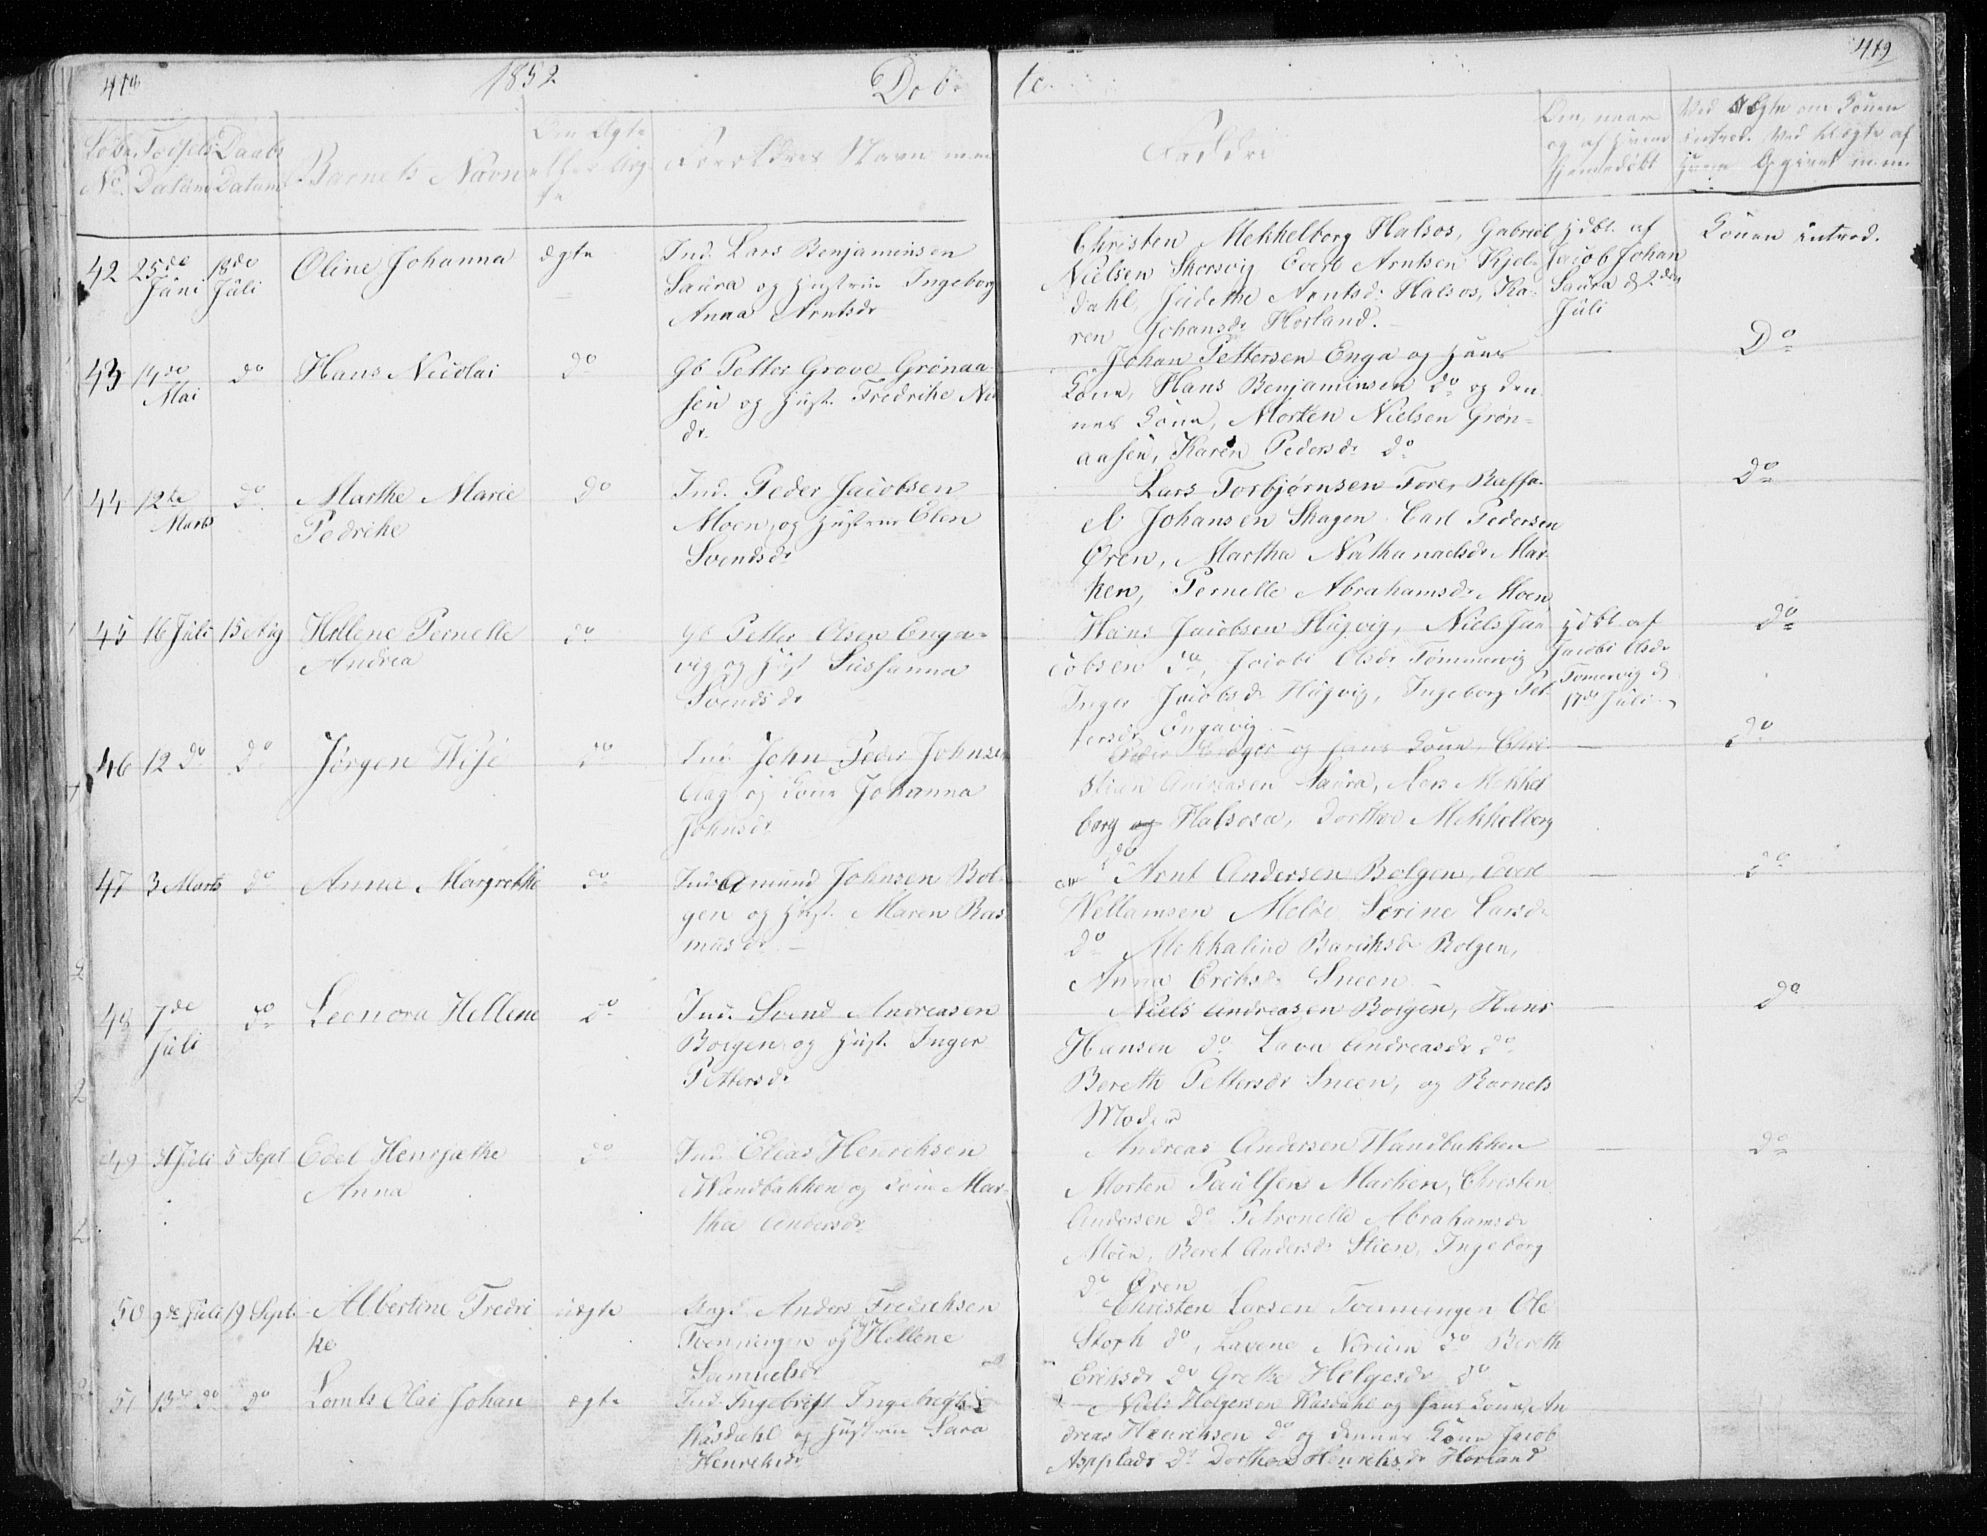 418
1852
Døbte
419
Løbe No.
Fødsels Datum
Daabs Datum
Barnets Navn
Om Ægte eller Uægte
Forældres Navn
Faddre
Om, naar og af hvem hjemmedøbt
Ved Ægte om Konen introd. Ved Uægte af
42 25de Juni 18de Juli
Oline Johanna
ægte
Ind. Lars Benjaminsen
Saura og Hustrue Ingeborg
Anna Arntsdr
Christen Mekkelborg Halsos, Gabriel
Nielsen Skorsvig Evert Arntsen Kjel-
dahl, Judethe Arntsdr Halsos, Ka-
ren Johansdr Horland.
hjdbt af
Jacob Johan
Saura d 2den
Juli
Konen introd.
43 Mai do
Hans Nicolai
do
Gb Petter Grove Grønaa-
sen og Hust. Fredrike
dr.
Johan Pettersen Enga og hans
Kone, Hans Benjaminsen do og den-
nes Kone, Morten Nielsen Grøn-
aasen, Karen Pedersdr do
Do
44 12te Marts do
Marthe Marie
Pedrike
do
Ind. Peder Jacobsen
Moen, og Hustrue Elen
Svendsdr
Lars Torbjørnsen Fore, Raffa-
el Johansen Skagen. Carl Pedersen
Øren, Martha Nathanaelsdr Mar-
ken, Pernelle Abrahamsdr Moen
do
45 16 Juli 15 Aug
Hellene Pernelle
Andrea
do
Gb Petter Olsen Enga-
vig og Hust Sussanna
Svendsdr
Hans Jacobsen Hugvig, Niels Ja-
cobsen do, Jacobi Olsdr Tømmervig
Inger Jacobsdr Hugvig, Ingeborg Pet-
tersdr Engavig
hjdbt af
Jacobi Olsdr
Tomervig d
17de Juli
do
46 12 do do
Jørgen
do
Ind. John Peder Johnsen
Aag og Kone Johanna
Johnsdr
og hans Kone, Chri-
stian Andreasen Saura, Mekkel
borg og Halsosa, Dorthea Mekkelborg
do
do
47 3 Marts do
Anna Margrethe
do
Ind Amund Johnsen Bol-
gen og Hust. Maren Ras-
musdr.
Arnt Andersen Bolgen, Evert
Wellamsen Meløe Serine Larsdr
do Mekkaline Baruksdr Bolgen,
Anna Eriksdr Sneen
do
48 7de Juli do
Leonora Hellene
do
Ind. Svend Andreasen
Bolgen og Hust. Inger
Pettersdr
Niels Andreasen Bolgen, Hans
Hansen do Lava Andreasdr do
Bereth Pettersdr Sneen, og Barnets
Moder
do
49 Juli 5 Sept
Edel Henrjæthe
Anna
do
Ind. Elias Henriksen
Wandbakken og Kone Mar-
tha Andersdr
Andreas Andersen Wandbakken
Morten Paulsen Marken, Christen
Andersen do Petronelle Abrahamsdr
Moen, Beret Andersdr Stien, Ingeborg
do Øren
do
50 9de Juli 19 Septb
Albertine Fredri
ke
uægte
Anders Fredriksen
Tvenningen og Hellene
Samuelsdr
Christen Larsen Tvenningen Ole
Storh do, Lavene Norum do Bereth
Eriksdr do Grethe Helgesdr do
51 13de do do
Lornts Olai Johan
ægte
Ind Ingebrigt Ingebregts
Kasdahl og Hustrue Sara
Henriksdr
Niels Holgersen Kasdahl og hans Kone, An
dreas Henriksen do og dennes Kone Jacob
do Dorthea Henriksdr Horland